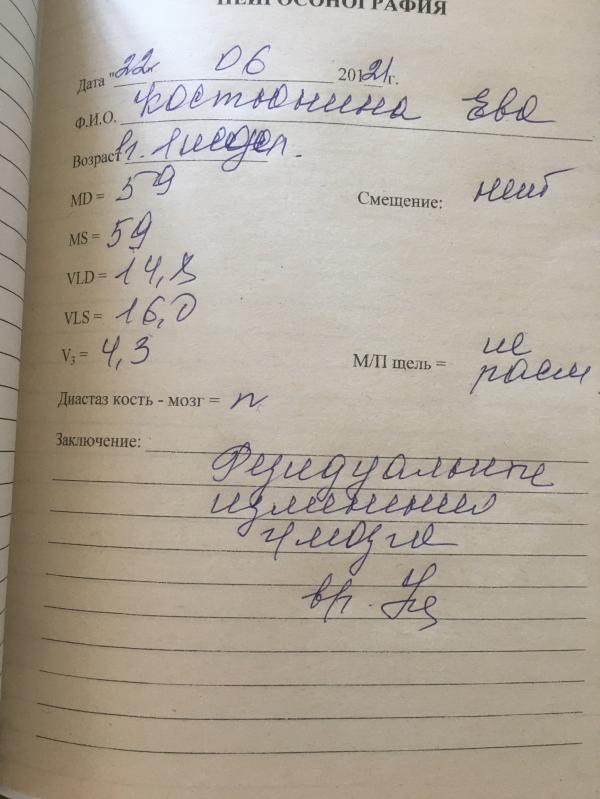 НЕЙРОСОНОГРАФИЯ
Дата "22" 06 201 21 г.
Ф.И.О. Костюнина Ева
Возраст
MD = 59 Смещение: нет
MS = 59
VLD = 14,8
VLS = 16,0
V₃ = 4,3 М/П щель = не расш
Диастаз кость - мозг = n
Заключение:
Резидуальные
изменения
г/мозга
вр.